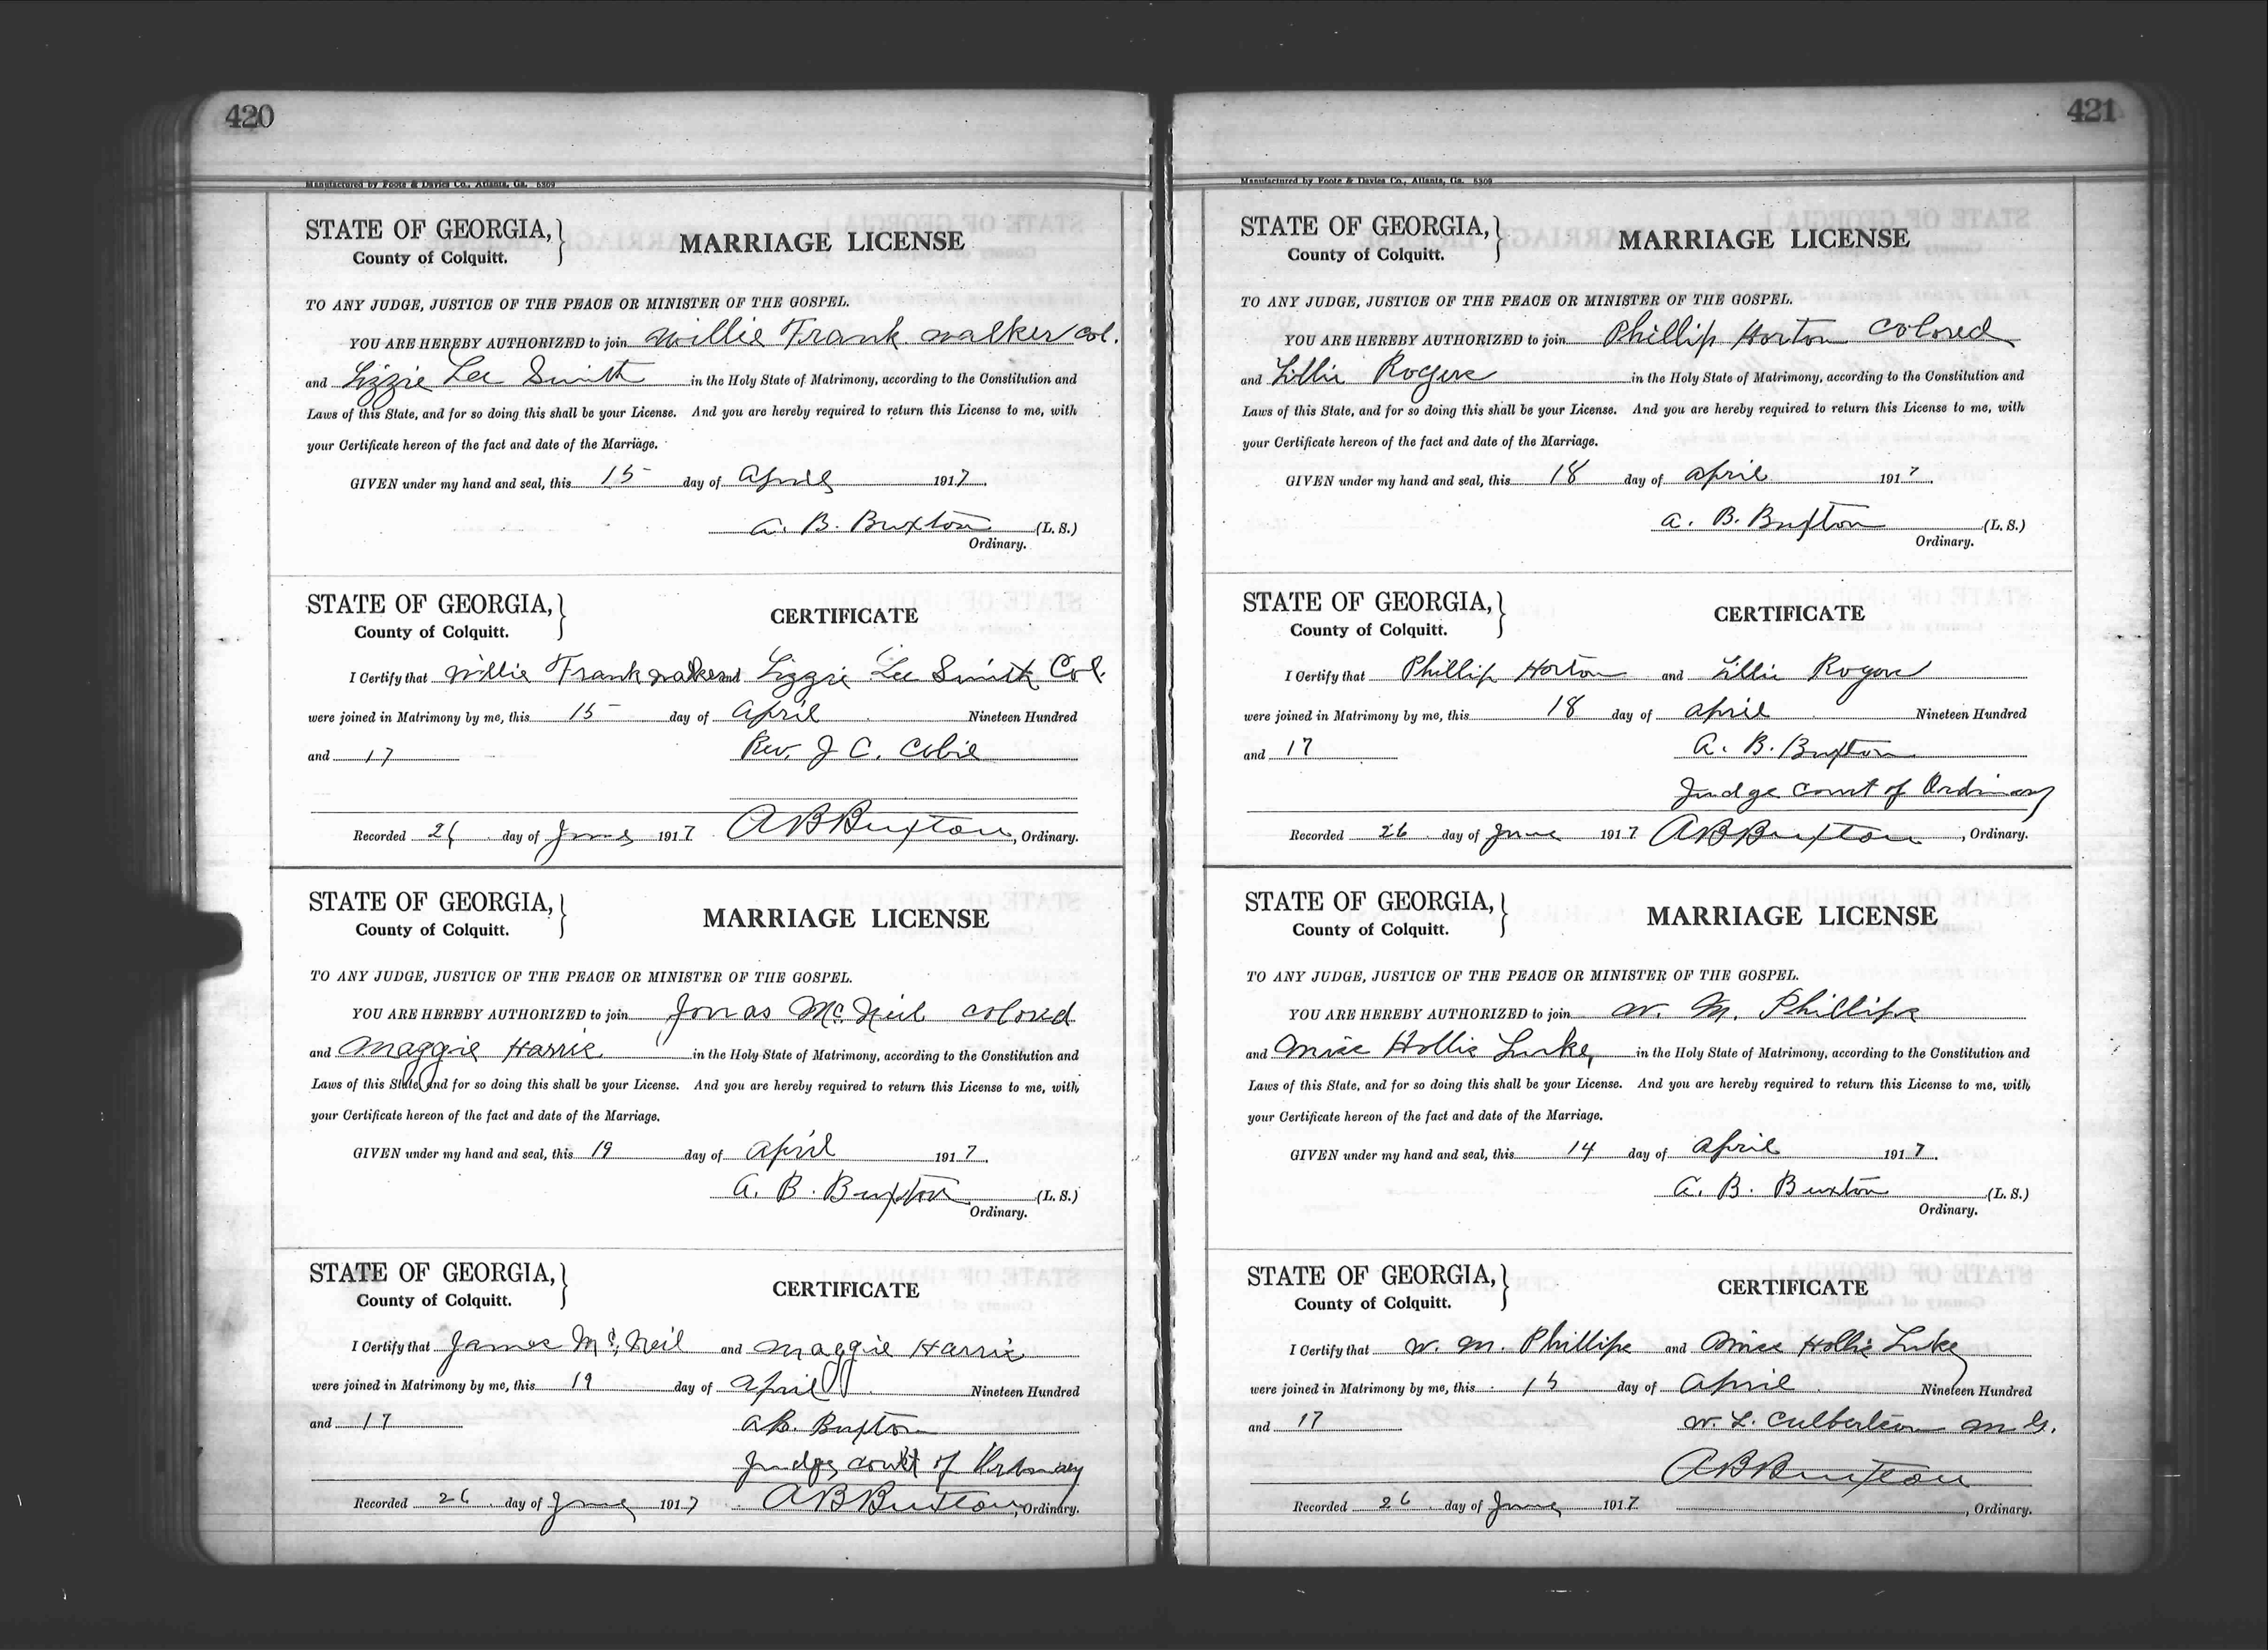 420
Manufactured by Foote & Davies Co., Atlanta, Ga. 5309
STATE OF GEORGIA, MARRIAGE LICENSE
County of Colquitt.
TO ANY JUDGE, JUSTICE OF THE PEACE OR MINISTER OF THE GOSPEL.
YOU ARE HEREBY AUTHORIZED to join Willie Frank Walker Col.
and Lizzie Lee Smith in the Holy State of Matrimony, according to the Constitution and
Laws of this State, and for so doing this shall be your License. And you are hereby required to return this License to me, with
your Certificate hereon of the fact and date of the Marriage.
GIVEN under my hand and seal, this 15 day of April 1917.
A. B. Buxton (L. S.)
Ordinary.
STATE OF GEORGIA, CERTIFICATE
County of Colquitt.
I Certify that Willie Frank Walker and Lizzie Lee Smith Col.
were joined in Matrimony by me, this 15 day of April Nineteen Hundred
and 17 Rev. J C.
Recorded 26 day of June 1917 A B Buxton, Ordinary.
STATE OF GEORGIA, MARRIAGE LICENSE
County of Colquitt.
TO ANY JUDGE, JUSTICE OF THE PEACE OR MINISTER OF THE GOSPEL.
YOU ARE HEREBY AUTHORIZED to join Jonas McNeil colored
and Maggie Harris in the Holy State of Matrimony, according to the Constitution and
Laws of this State, and for so doing this shall be your License. And you are hereby required to return this License to me, with
your Certificate hereon of the fact and date of the Marriage.
GIVEN under my hand and seal, this 19 day of April 1917.
A. B. Buxton (L. S.)
Ordinary.
STATE OF GEORGIA, CERTIFICATE
County of Colquitt.
I Certify that James McNeil and Maggie Harris
were joined in Matrimony by me, this 19 day of April Nineteen Hundred
and 17 A B. Buxton
Judge court of Ordinary
Recorded 26 day of June 1917 A B Buxton, Ordinary.
421
Manufactured by Foote & Davies Co., Atlanta, Ga. 5309
STATE OF GEORGIA, MARRIAGE LICENSE
County of Colquitt.
TO ANY JUDGE, JUSTICE OF THE PEACE OR MINISTER OF THE GOSPEL.
YOU ARE HEREBY AUTHORIZED to join Phillip Horton Colored
and Lillie Rogers in the Holy State of Matrimony, according to the Constitution and
Laws of this State, and for so doing this shall be your License. And you are hereby required to return this License to me, with
your Certificate hereon of the fact and date of the Marriage.
GIVEN under my hand and seal, this 18 day of April 1917.
A. B. Buxton (L. S.)
Ordinary.
STATE OF GEORGIA, CERTIFICATE
County of Colquitt.
I Certify that Phillip Horton and Lillie Rogers
were joined in Matrimony by me, this 18 day of April Nineteen Hundred
and 17 A. B. Buxton
Judge Court of Ordinary
Recorded 26 day of June 1917 A B Buxton, Ordinary.
STATE OF GEORGIA, MARRIAGE LICENSE
County of Colquitt.
TO ANY JUDGE, JUSTICE OF THE PEACE OR MINISTER OF THE GOSPEL.
YOU ARE HEREBY AUTHORIZED to join W. M. Phillips
and Miss Hollis Luke, in the Holy State of Matrimony, according to the Constitution and
Laws of this State, and for so doing this shall be your License. And you are hereby required to return this License to me, with
your Certificate hereon of the fact and date of the Marriage.
GIVEN under my hand and seal, this 14 day of April 1917.
A. B. Buxton (L. S.)
Ordinary.
STATE OF GEORGIA, CERTIFICATE
County of Colquitt.
I Certify that W. M. Phillips and Miss Hollis Luke
were joined in Matrimony by me, this 15 day of April Nineteen Hundred
and 17 W. L. Culbertson M G.
A B Buxton
Recorded 26 day of June 1917, Ordinary.